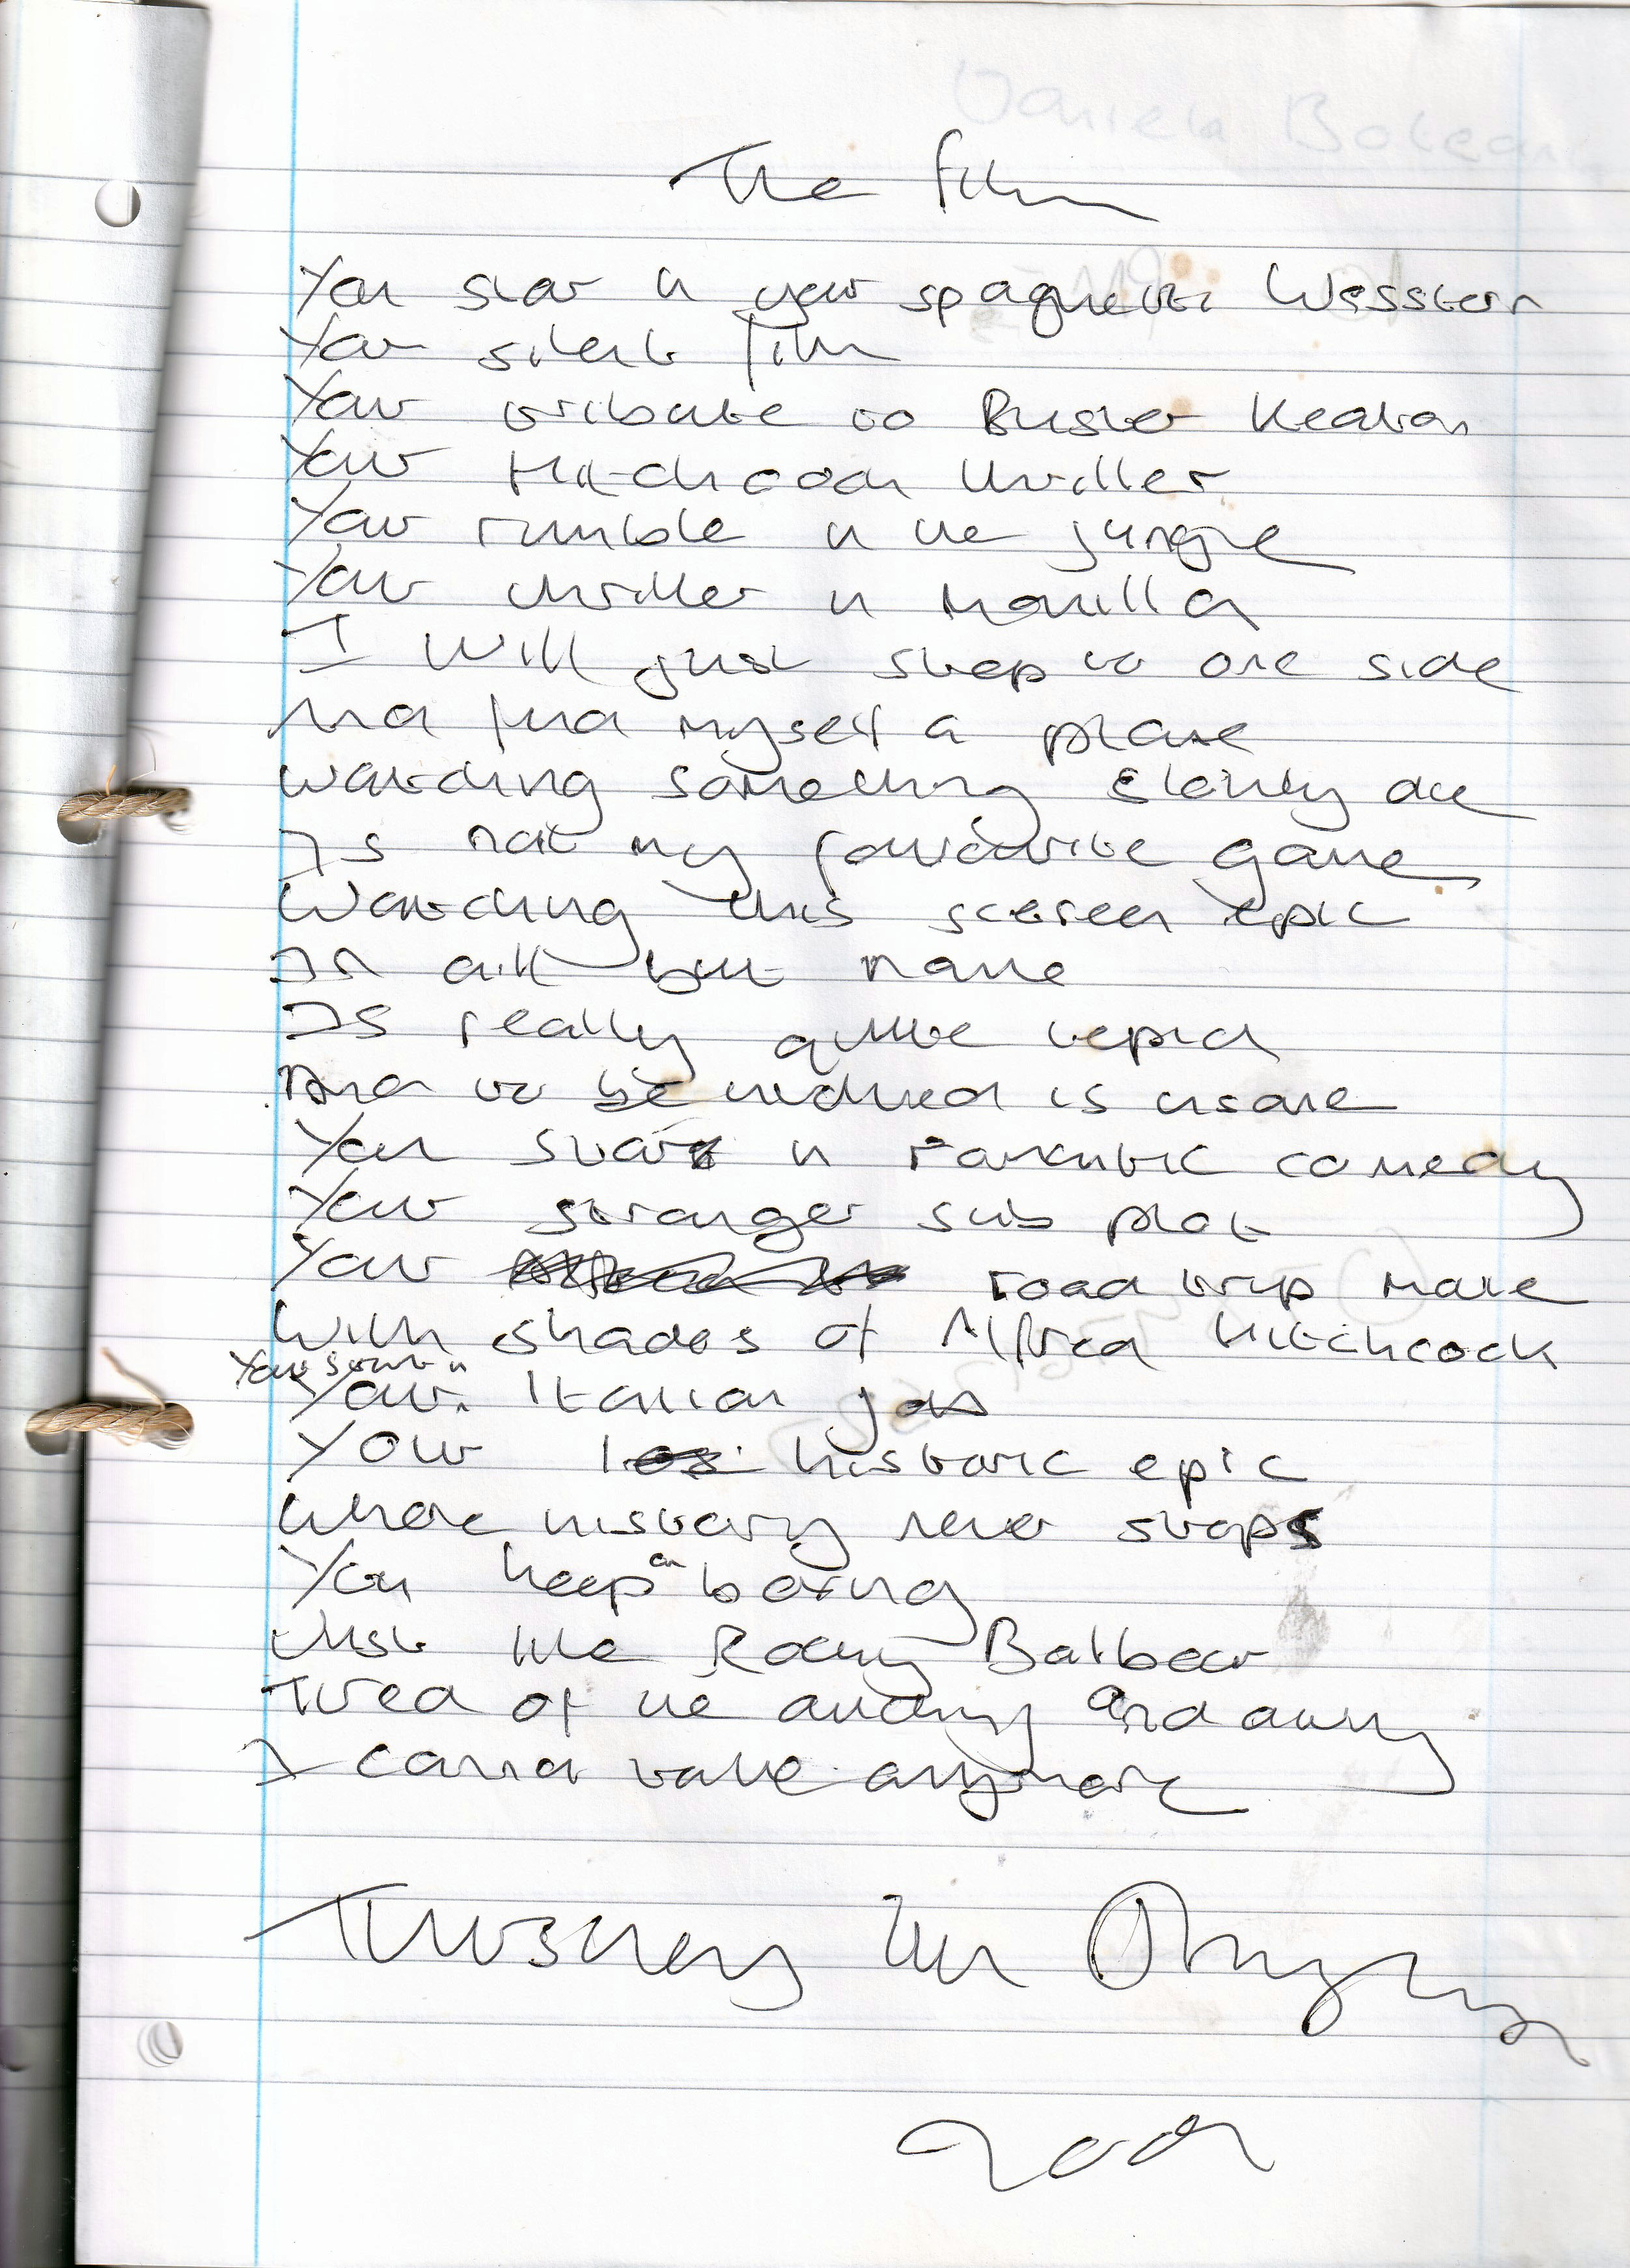 The film
You star in your spaghetti Wesstern
Your silent film
Your tribute to Buster Keaton
Your Hitchcock thriller
Your rumble in the jungle
Your thriller in Manilla
I will just step to one side
And find myself a place
Watching something slowly die
Is not my favourite game
Watching this screen epic
In all but name
Is really quite tepid
And to be inclined is insane
You star in romantic comedy
Your stranger sub plot
Your road trip movie
With shades of Alfred Hitchcock
You star in
Your Italian job
Your historic epic
Where history never stops
You keep on boxing
Just like Rocky Balboar
Tired of the and
I cannot take anymore